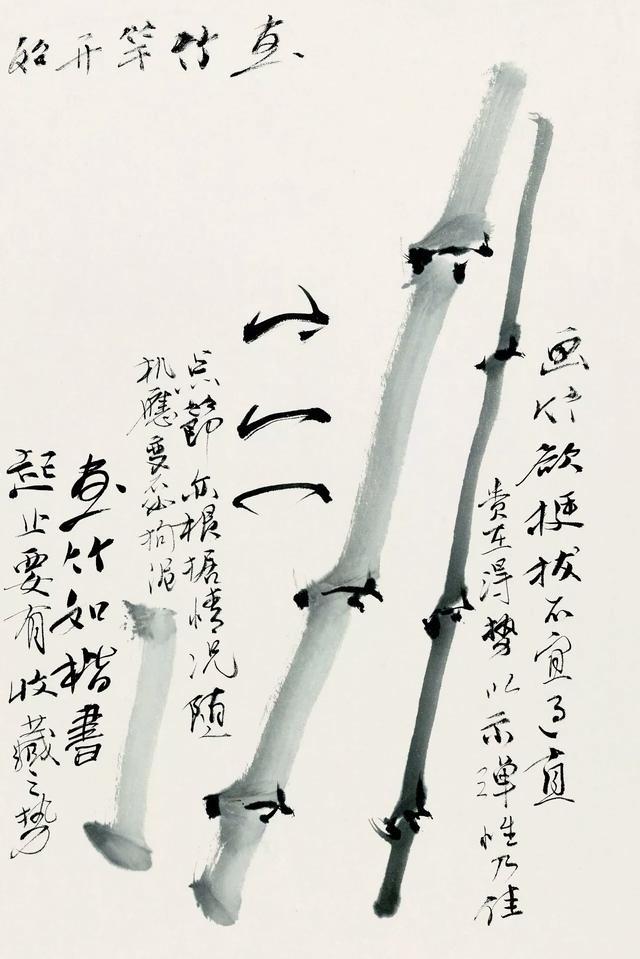 画竹竿开始
画竹欲挺拔不宜过直
贵在得势以示弹性乃佳
点節亦根据情况随
机應变不拘泥
画竹如楷書
起止要有收藏之势